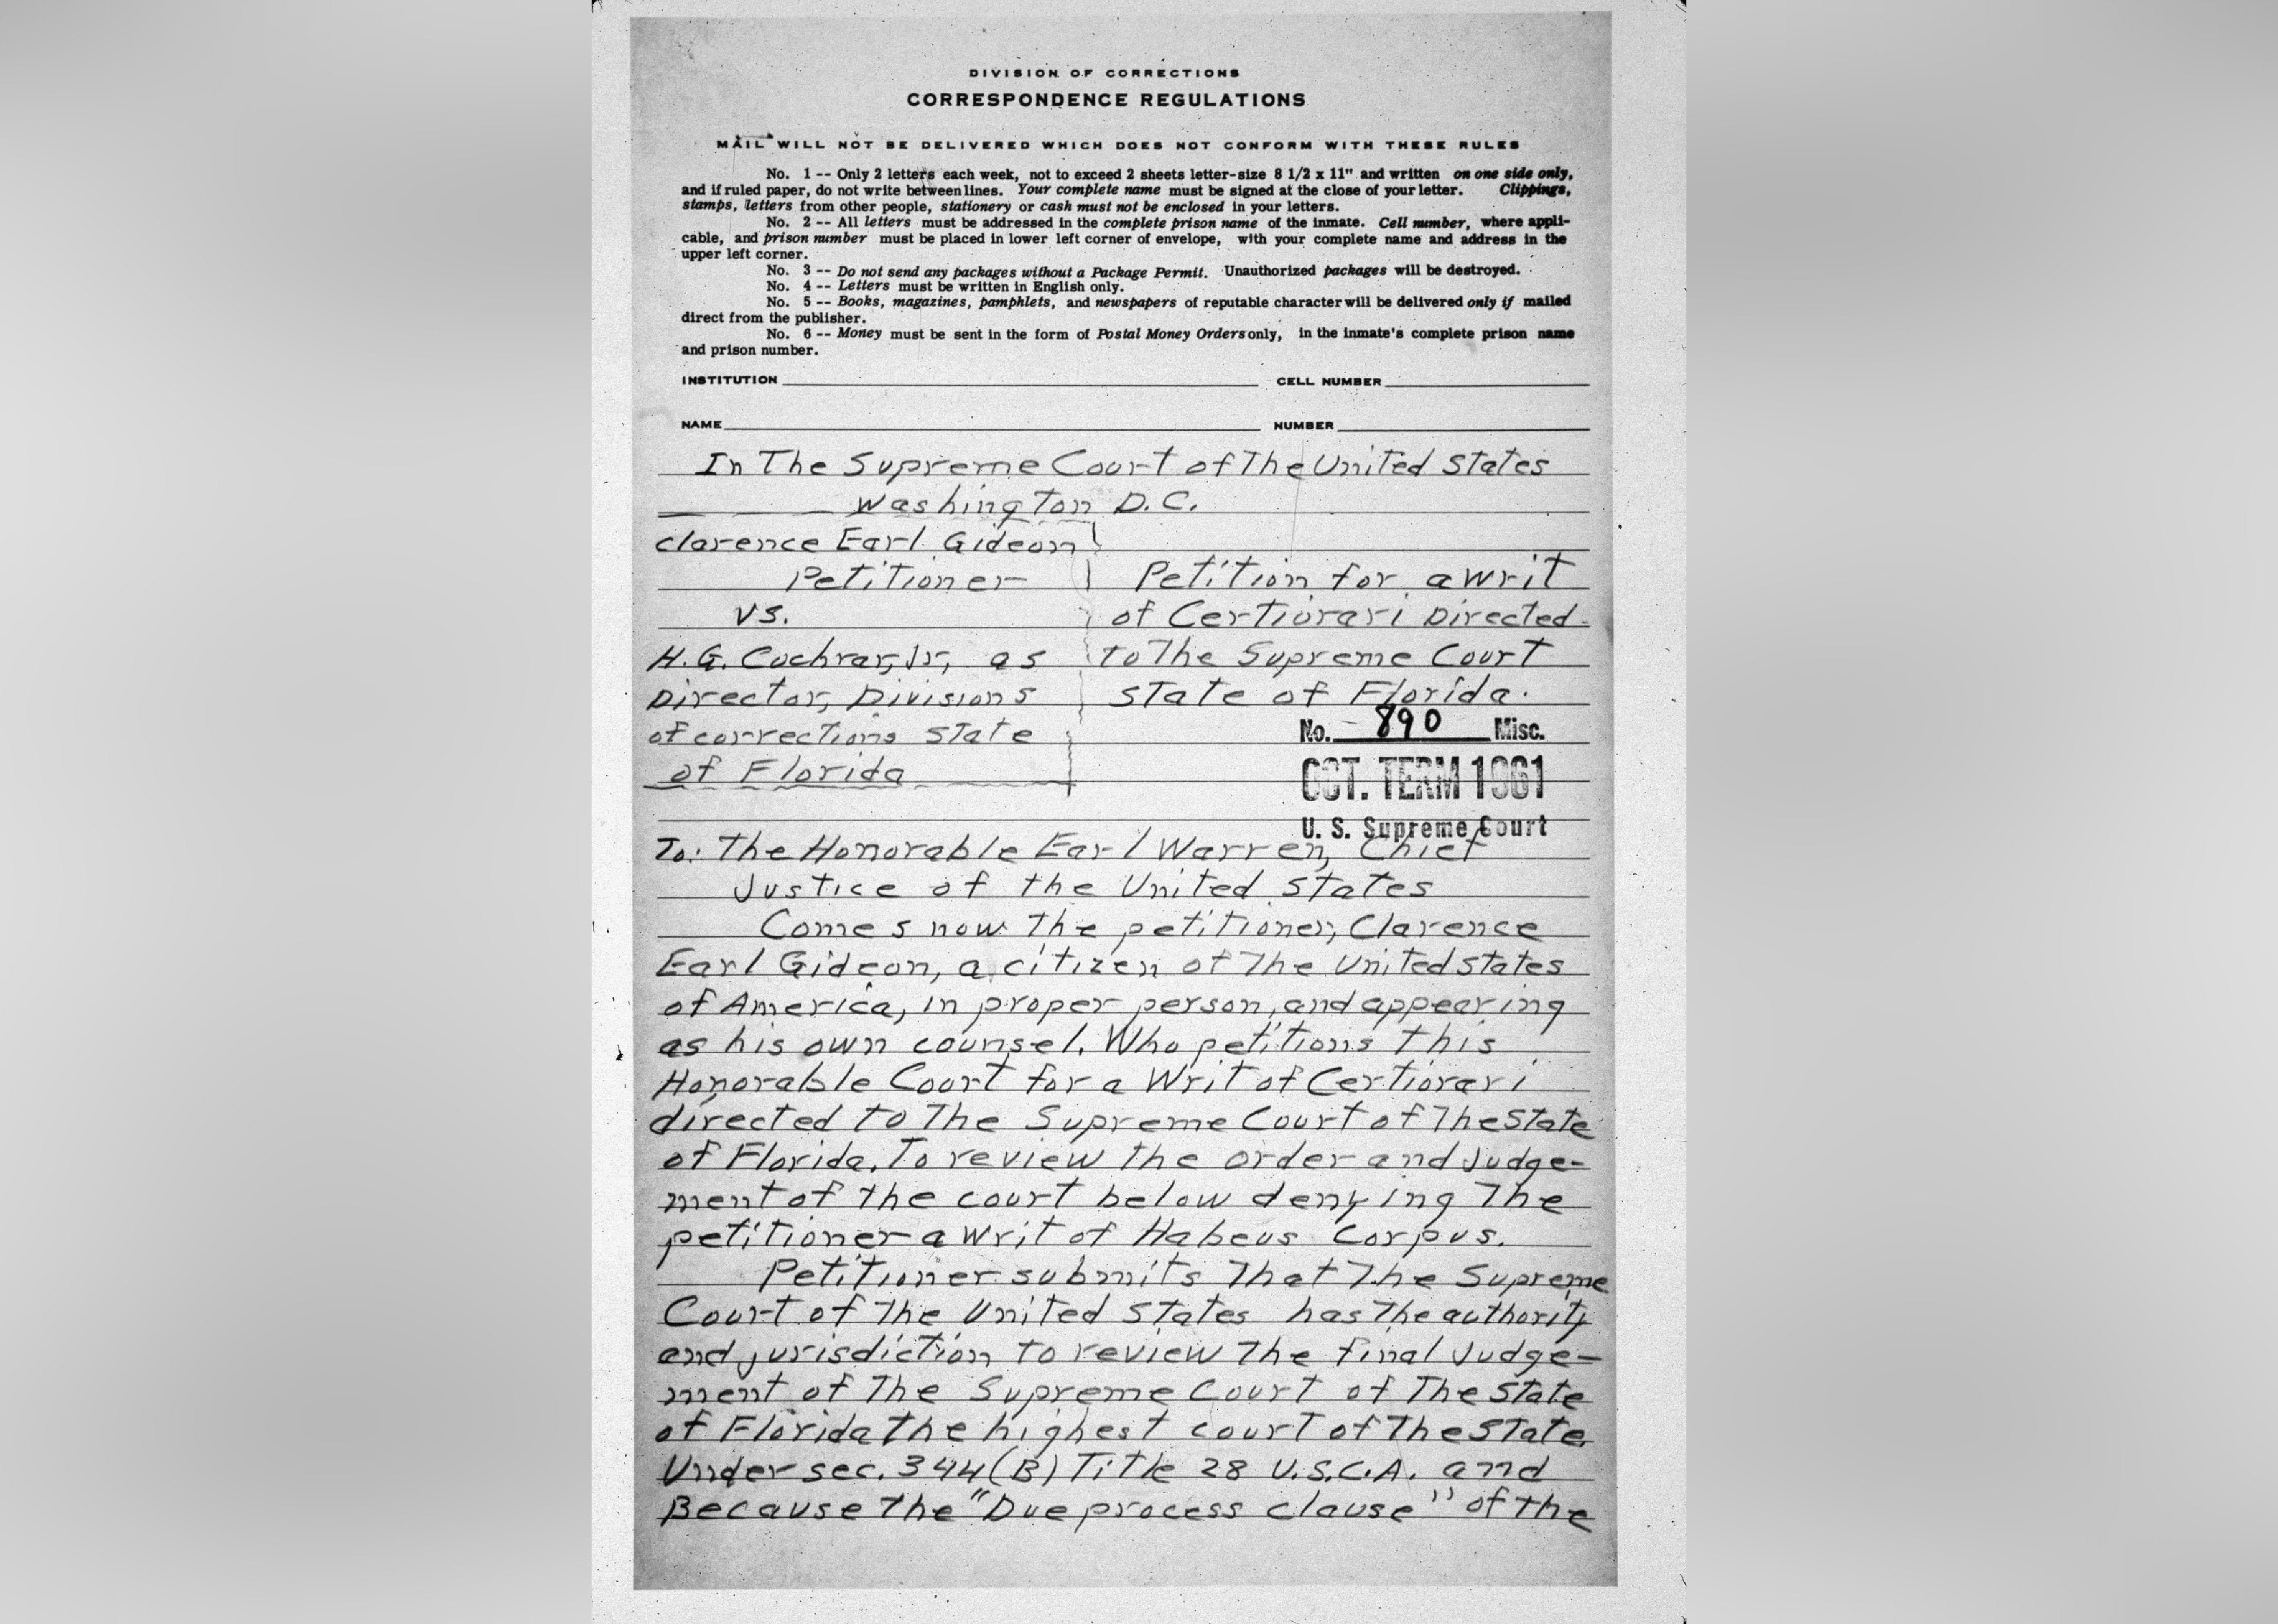 DIVISION OF CORRECTIONS
CORRESPONDENCE REGULATIONS
MAIL WILL NOT BE DELIVERED WHICH DOES NOT CONFORM WITH THESE RULES
No. 1 -- Only 2 letters each week, not to exceed 2 sheets letter-size 8 1/2 x 11" and written on one side only,
and if ruled paper, do not write between lines. Your complete name must be signed at the close of your letter. Clippings,
stamps, letters from other people, stationery or cash must not be enclosed in your letters.
No. 2 -- All letters must be addressed in the complete prison name of the inmate. Cell number, where appli-
cable, and prison number must be placed in lower left corner of envelope, with your complete name and address in the
upper left corner.
No. 3 -- Do not send any packages without a Package Permit. Unauthorized packages will be destroyed.
No. 4 -- Letters must be written in English only.
No. 5 -- Books, magazines, pamphlets, and newspapers of reputable character will be delivered only if mailed
direct from the publisher.
No. 6 -- Money must be sent in the form of Postal Money Orders only, in the inmate's complete prison name
and prison number.
INSTITUTION CELL NUMBER
NAME NUMBER
In The Supreme Court of The United States
Washington D.C.
Clarence Earl Gideon
Petitioner
vs.
H.G. Cochran, Jr, as
Director, Divisions
of corrections state
of Florida
Petition for a writ
of Certiorari Directed
to The Supreme Court
State of Florida.
No. 890 Misc.
OCT. TERM 1961
U. S. Supreme Court
To: The Honorable Earl Warren, Chief
Justice of the United States
Comes now the petitioner, Clarence
Earl Gideon, a citizen of The United states
of America, in proper person, and appearing
as his own counsel. Who petitions this
Honorable Court for a Writ of Certiorari
directed to The Supreme Court of The State
of Florida. To review the order and Judge-
ment of the court below denying The
petitioner a writ of Habeus Corpus.
Petitioner submits That The Supreme
Court of The United States has The authority
and jurisdiction to review The final Judge-
ment of The Supreme Court of The State
of Florida the highest court of The State
Under sec. 344(B) Title 28 U.S.C.A. and
Because the "Due process clause" of the